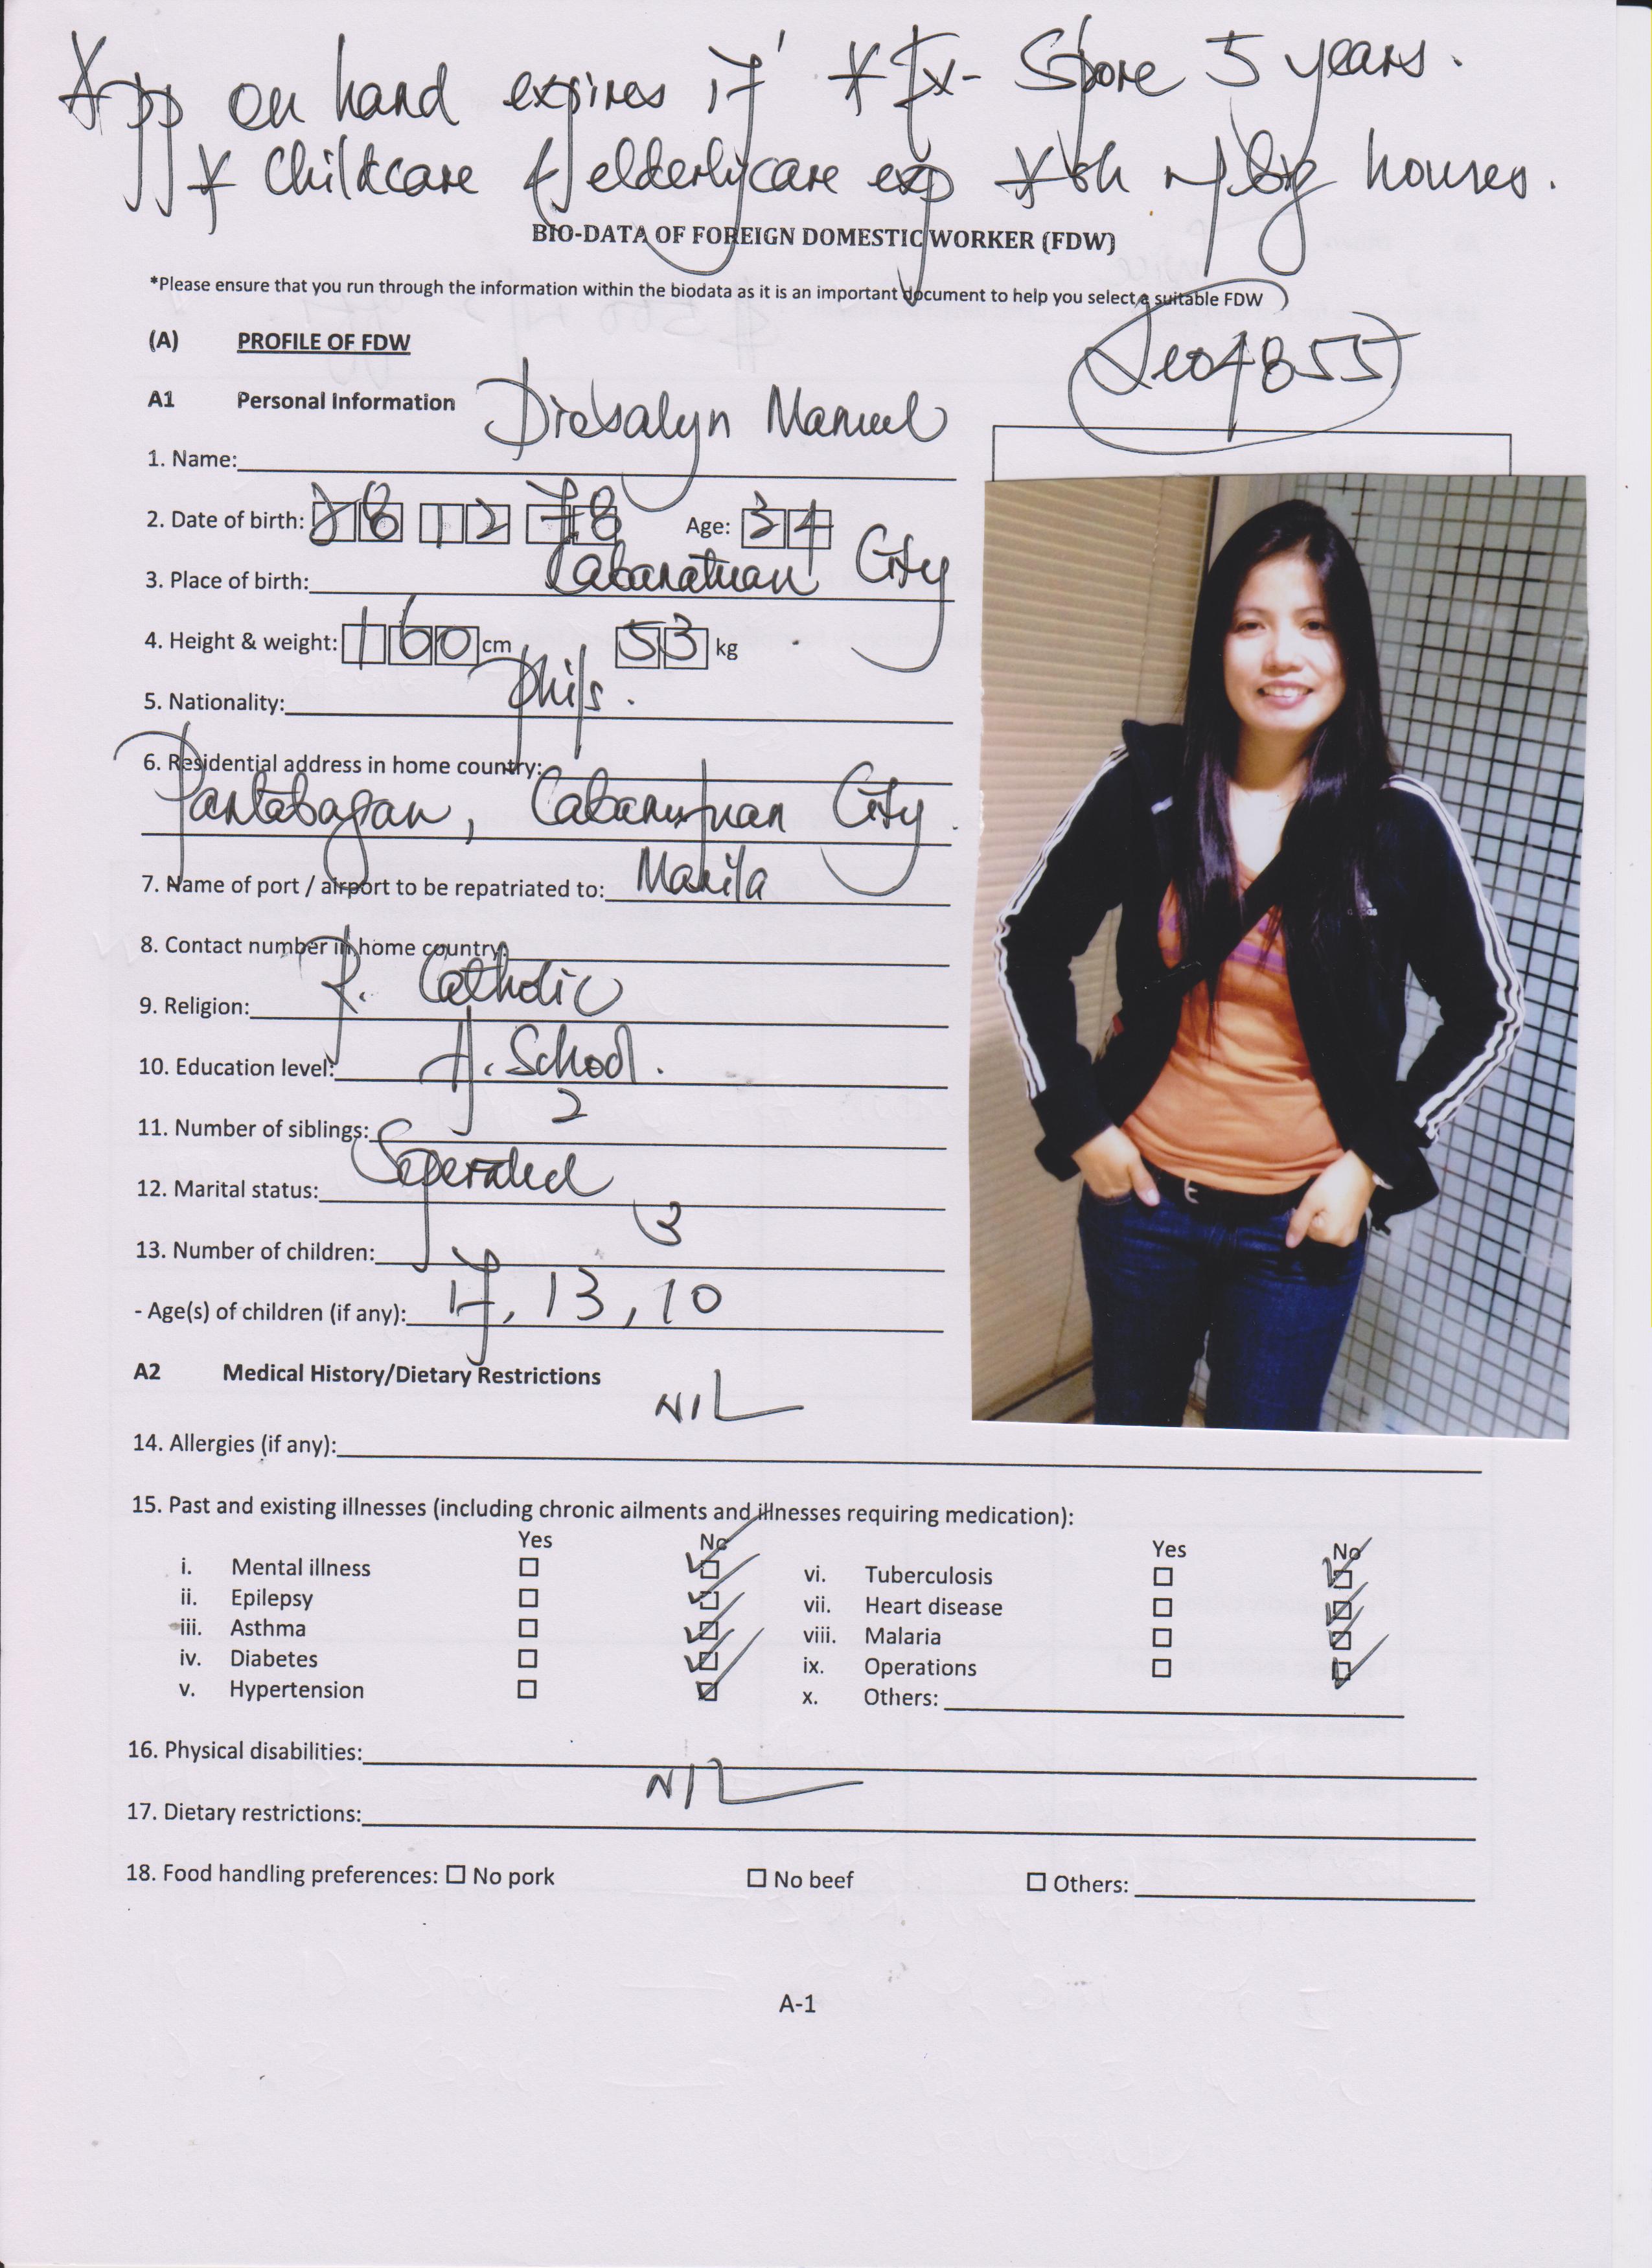 *pp on hand expires 17' * Ex- S'pore 5 years.
* Childcare & elderlycare exp * ok w/ big houses.
BIO-DATA OF FOREIGN DOMESTIC WORKER (FDW)
*Please ensure that you run through the information within the biodata as it is an important document to help you select a suitable FDW
(A) PROFILE OF FDW
A1 Personal Information
1. Name: Diosalyn Manuel
2. Date of birth: 28 12 78 Age: 34
3. Place of birth: Cabanatuan City
4. Height & weight: 160 cm 53 kg
5. Nationality: Phils.
6. Residential address in home country:
Pantabagan, Cabanatuan City.
7. Name of port / airport to be repatriated to: Manila
8. Contact number in home country:
9. Religion: R. Catholic
10. Education level: H. School.
11. Number of siblings: 2
12. Marital status: Seperated
13. Number of children: 3
- Age(s) of children (if any): 17, 13, 10
A2 Medical History/Dietary Restrictions
14. Allergies (if any): NIL
15. Past and existing illnesses (including chronic ailments and illnesses requiring medication):
Yes No Yes No
i. Mental illness vi. Tuberculosis
ii. Epilepsy vii. Heart disease
iii. Asthma viii. Malaria
iv. Diabetes ix. Operations
v. Hypertension x. Others:
16. Physical disabilities:
17. Dietary restrictions: NIL
18. Food handling preferences: No pork No beef Others:
A-1